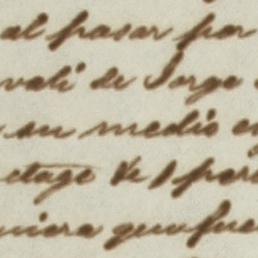 al pasar por
vali de Jorge
su medio e
etage de 1 par
niera que fue